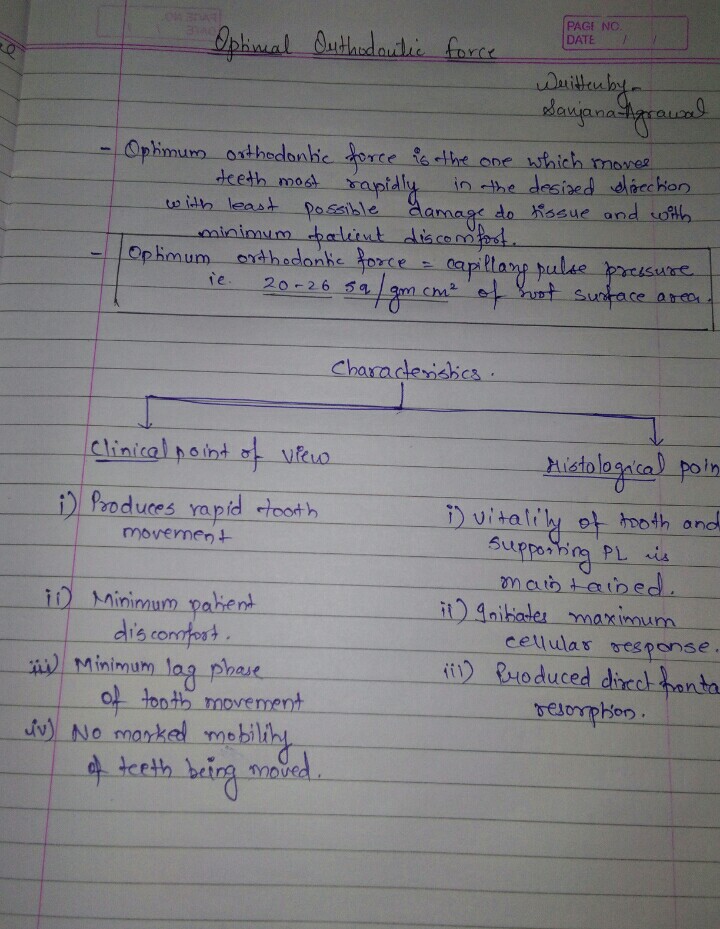 PAGE NO.
DATE / /
Optimal Orthodontic force
Written by-
Sanjana Agrawal
- Optimum orthodontic force is the one which moves
teeth most rapidly in the desired direction
with least possible damage do tissue and with
minimum patient discomfort.
- Optimum orthodontic force = capillary pulse pressure
ie. 20-26 sq/gm cm² of root surface area.
Characteristics.
Clinical point of view
i) Produces rapid tooth
movement
ii) Minimum patient
discomfort.
iii) Minimum lag phase
of tooth movement
iv) No marked mobility
of teeth being moved.
Histological poin
i) vitality of tooth and
supporting PL is
maintained.
ii) Initiates maximum
cellular response.
iii) Produced direct fronta
resorption.